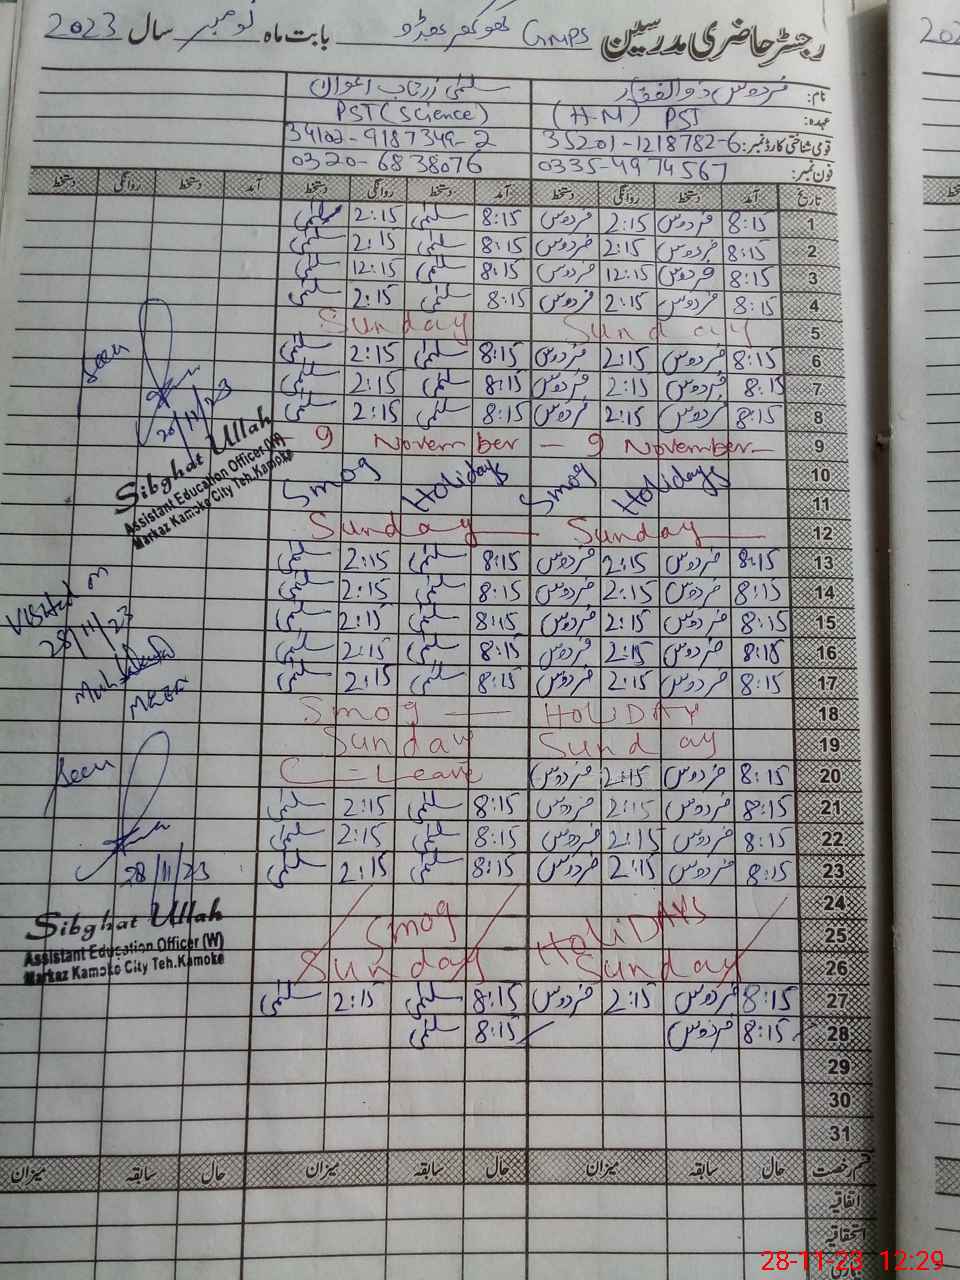 رجسٹر حاضری مدرسین GMPS کھوکھر بابت ماہ نومبر سال 2023
نام: فردوس ذوالفقار سلمیٰ زرتاب اعوان
عہدہ: PST (H-M) PST (Science)
قومی شناختی کارڈ نمبر: 35201-1218782-6 34102-9187349-2
فون نمبر: 0335-4974567 0320-6838076
تاریخ آمد دستخط روانگی دستخط آمد دستخط روانگی دستخط آمد دستخط روانگی دستخط
1 8:15 فردوس 2:15 فردوس 8:15 سلمیٰ 2:15 سلمیٰ
2 8:15 فردوس 2:15 فردوس 8:15 سلمیٰ 2:15 سلمیٰ
3 8:15 فردوس 12:15 فردوس 8:15 سلمیٰ 12:15 سلمیٰ
4 8:15 فردوس 2:15 فردوس 8:15 سلمیٰ 2:15 سلمیٰ
5 Sunday Sunday
6 8:15 فردوس 2:15 فردوس 8:15 سلمیٰ 2:15 سلمیٰ
7 8:15 فردوس 2:15 فردوس 8:15 سلمیٰ 2:15 سلمیٰ
8 8:15 فردوس 2:15 فردوس 8:15 سلمیٰ 2:15 سلمیٰ
9 9 November - 9 November
10 Smog Holidays Smog Holidays
11
12 Sunday Sunday
13 8:15 فردوس 2:15 فردوس 8:15 سلمیٰ 2:15 سلمیٰ
14 8:15 فردوس 2:15 فردوس 8:15 سلمیٰ 2:15 سلمیٰ
15 8:15 فردوس 2:15 فردوس 8:15 سلمیٰ 2:15 سلمیٰ
16 8:15 فردوس 2:15 فردوس 8:15 سلمیٰ 2:15 سلمیٰ
17 8:15 فردوس 2:15 فردوس 8:15 سلمیٰ 2:15 سلمیٰ
18 Smog HoliDAY
19 Sunday Sunday
20 8:15 فردوس 2:15 فردوس C-Leave
21 8:15 فردوس 2:15 فردوس 8:15 سلمیٰ 2:15 سلمیٰ
22 8:15 فردوس 2:15 فردوس 8:15 سلمیٰ 2:15 سلمیٰ
23 8:15 فردوس 2:15 فردوس 8:15 سلمیٰ 2:15 سلمیٰ
24
25 Smog HoliDAYS
26 Sunday Sunday
27 8:15 فردوس 2:15 فردوس 8:15 سلمیٰ 2:15 سلمیٰ
28 8:15 فردوس 8:15 سلمیٰ
29
30
31
قسم رخصت حال سابقہ میزان حال سابقہ میزان حال سابقہ میزان
اتفاقیہ
استحقاقیہ
Seen
20/11/23
Sibghat Ullah
Assistant Education Officer (W)
Markaz Kamoke City Teh.Kamoke
Visited on
28/11/23
Seen
28/11/23
Sibghat Ullah
Assistant Education Officer (W)
Markaz Kamoke City Teh.Kamoke
28-11-23 12:29